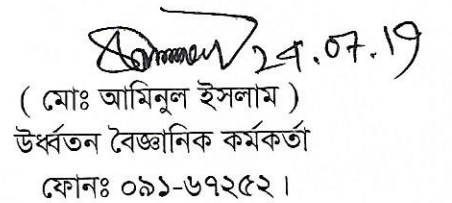 24.07.19
( মোঃ আমিনুল ইসলাম )
উর্ধ্বতন বৈজ্ঞানিক কর্মকর্তা
ফোনঃ ০৯১-৬৭২৫২।